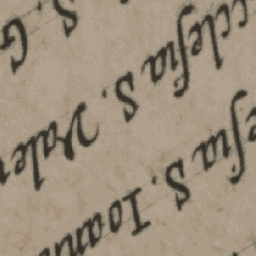 eſia S. Ioann
ccleſia S. Vale
S. G